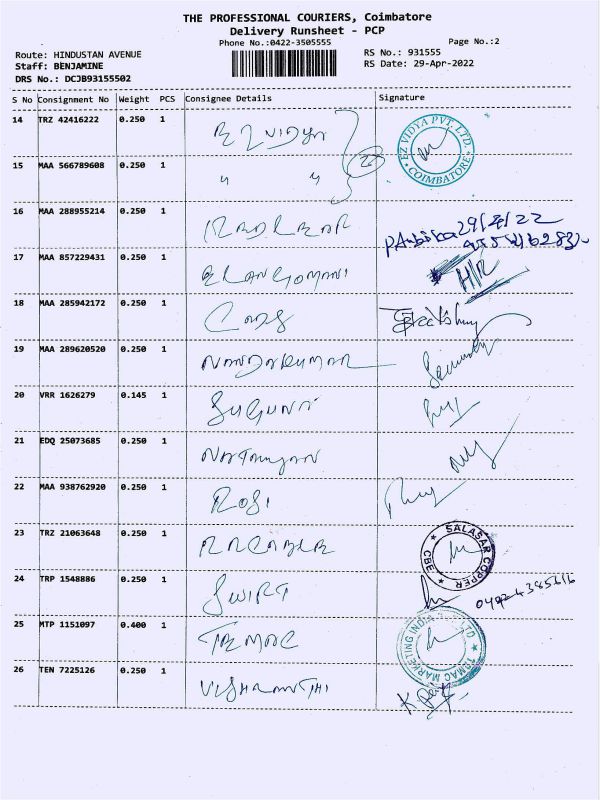 THE PROFESSIONAL COURIERS, Coimbatore
Delivery Runsheet - PCP
Phone No.:0422-3505555
Page No.:2
Route: HINDUSTAN AVENUE
RS No.: 931555
Staff: BENJAMINE
RS Date: 29-Apr-2022
DRS No.: DCJB93155502
S No Consignment No Weight PCS Consignee Details Signature
14 TRZ 42416222 0.250 1 EZ VIDYA
EZ VIDYA PVT. LTD. COIMBATORE
15 MAA 566789608 0.250 1 " "
16 MAA 288955214 0.250 1 29/4/22
17 MAA 857229431 0.250 1 ELANGOMANI H/R
18 MAA 285942172 0.250 1
19 MAA 289620520 0.250 1 NANDAKUMAR
20 VRR 1626279 0.145 1 SUGUNA
21 EDQ 25073685 0.250 1 NATARAJAN
22 MAA 938762920 0.250 1 ROSI
23 TRZ 21063648 0.250 1
SALASAR COPPER CBE
24 TRP 1548886 0.250 1 SWIFT
25 MTP 1151097 0.400 1 TEMAC
TEMAC MARKETING INDIA LTD
26 TEN 7225126 0.250 1 VISHRANTHI